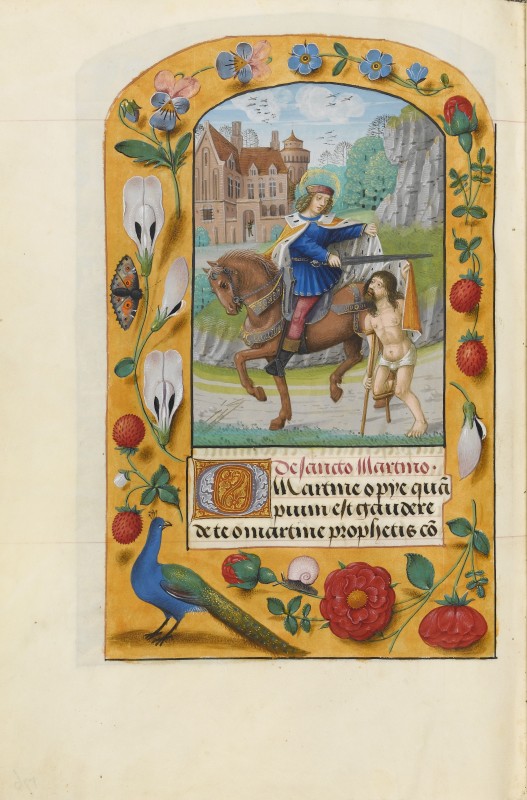 De sancto Martino.
O Martine o pye quã
pium est gaudere
de te o martine prophetis cõ